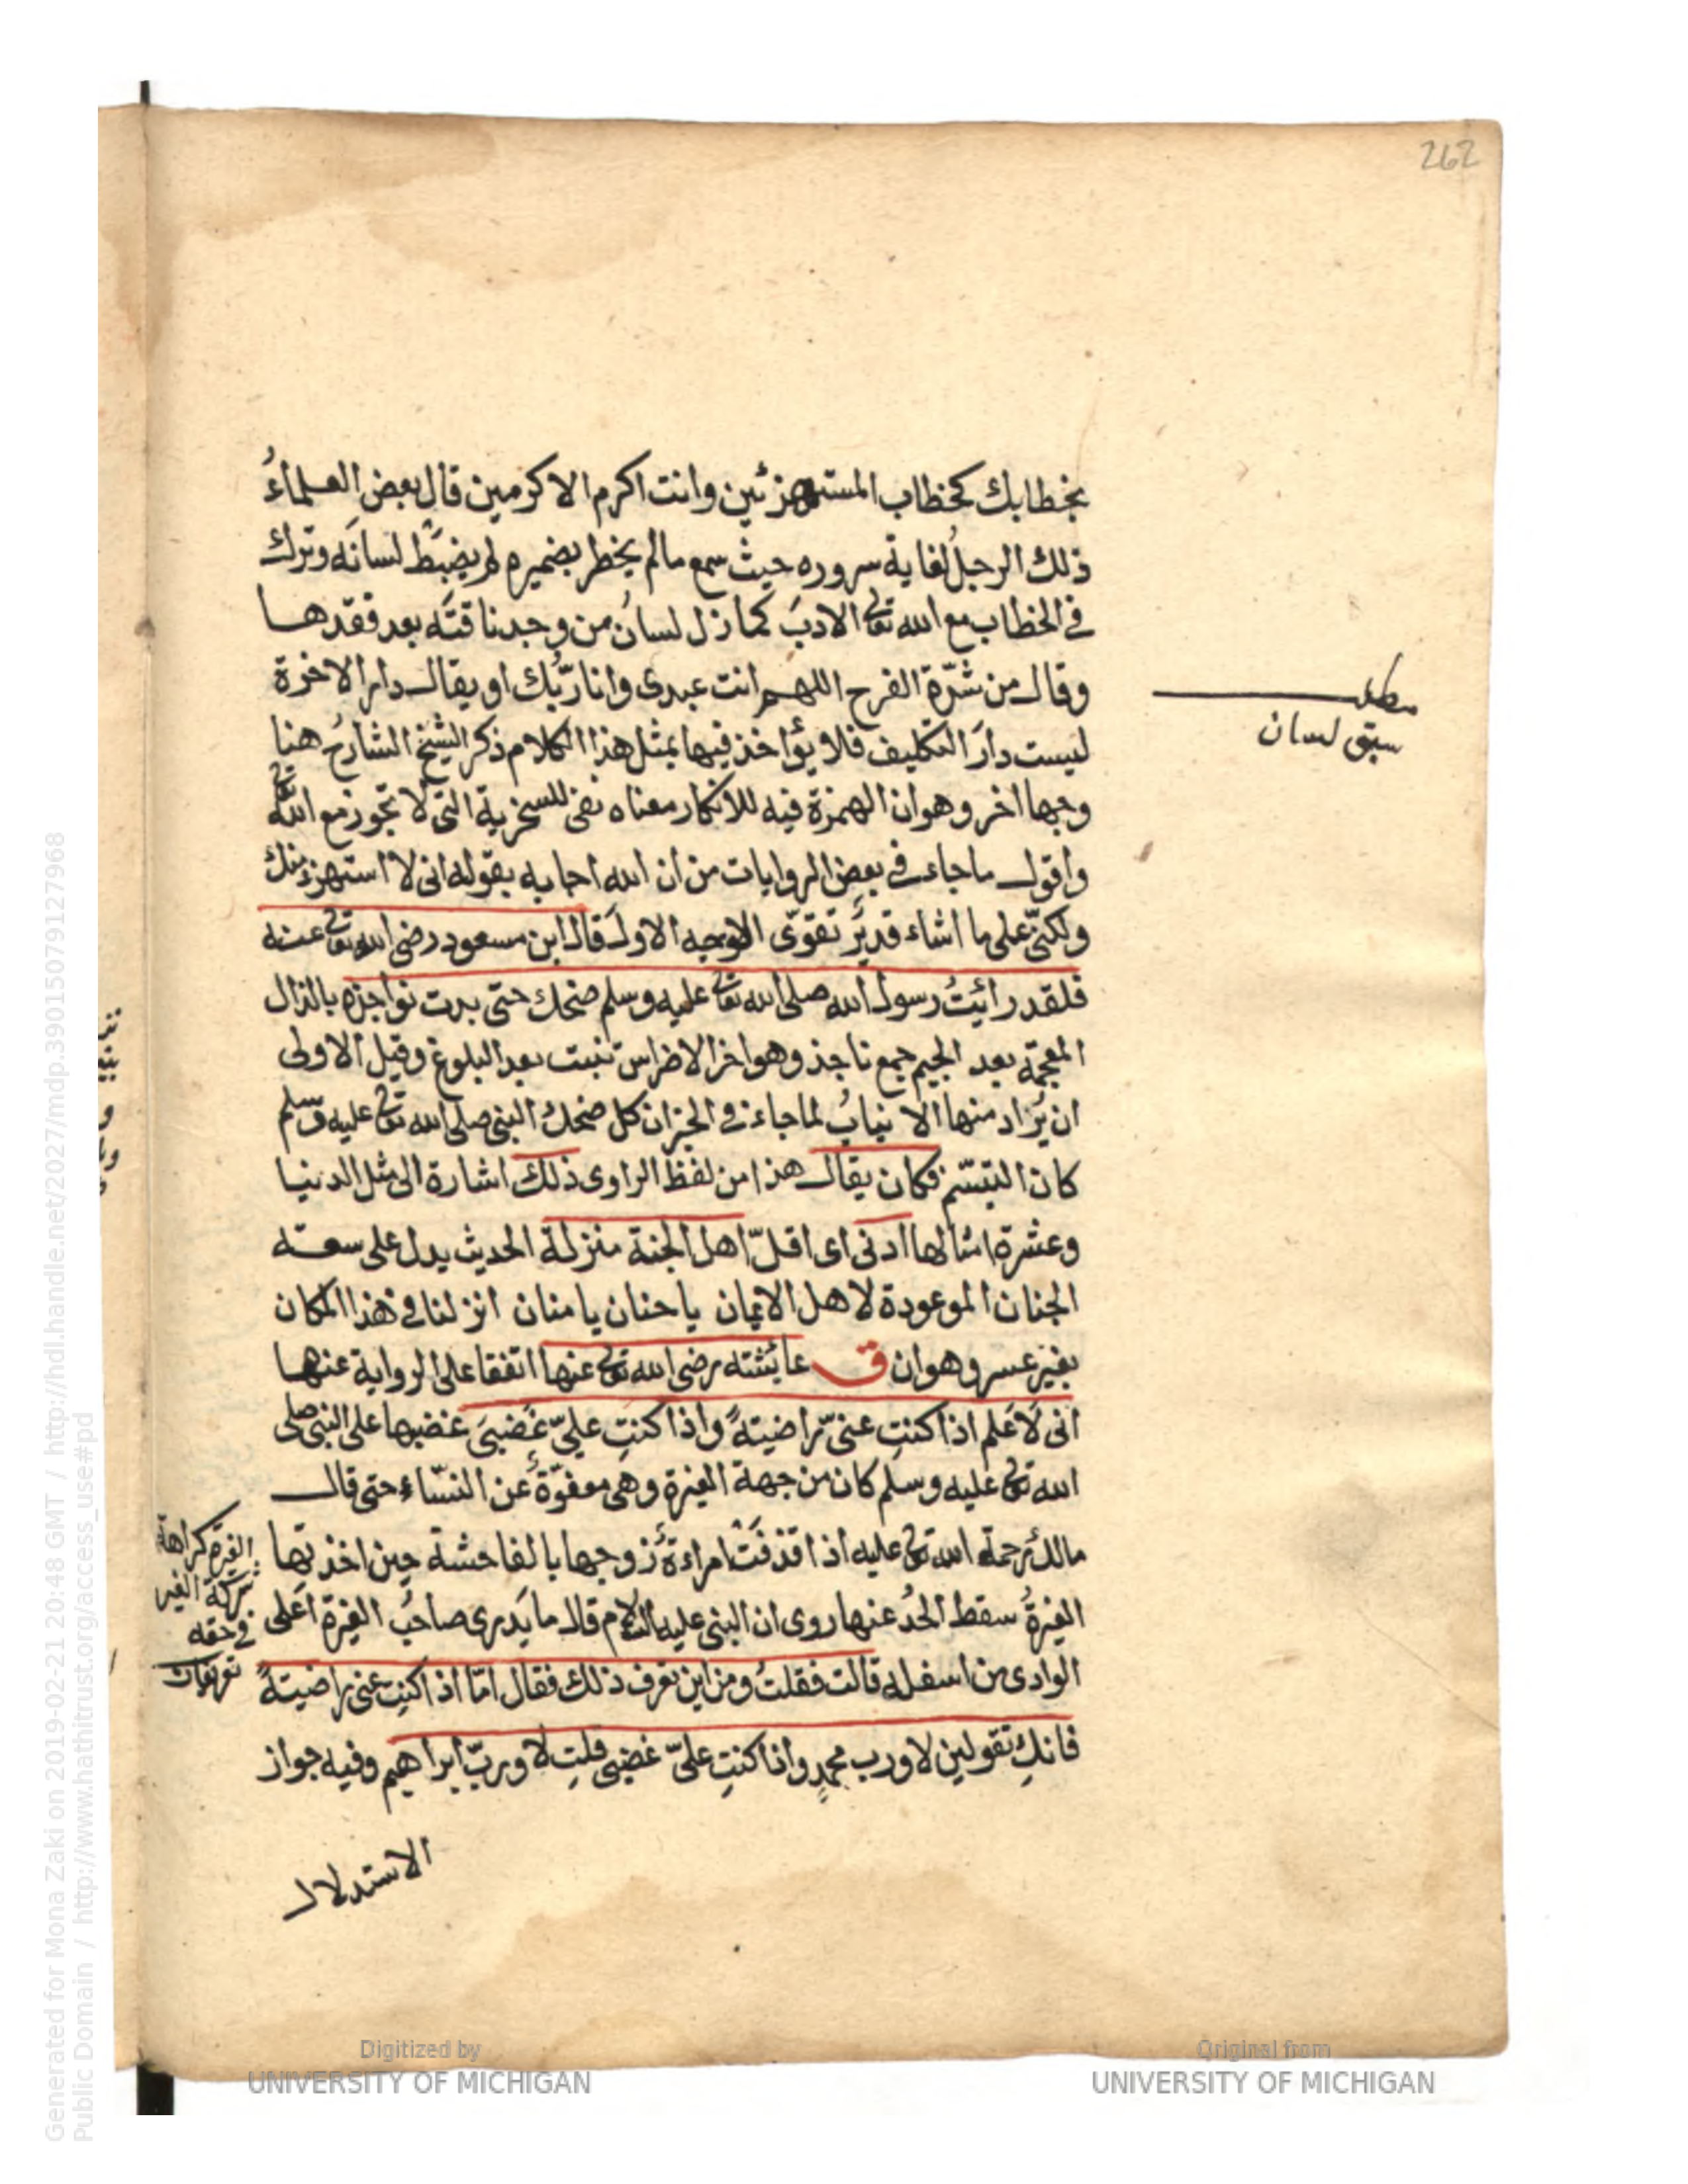 262
بخطابك كخطاب المستهزئين وانت اكرم الاكرمين قال بعض العلماءُ
ذلك الرجلُ لغاية سروره حيث سمع مالم يخطر بضميره لم يضبَّط لسانَه وترك
في الخطاب مع الله تعالى الادبَ كما زل لسانُ من وجد ناقتَه بعد فقدها
وقال من شدّة الفرح اللهم انت عبدى وانا ربُّك او يقال دار الاخرة
ليست دارَ التكليف فلا يؤاخذ فيها بمثل هذا الكلام ذكر الشيخ الشارحُ هنا
وجها اخر وهو ان الهمزة فيه للانكار معناه نفى للسخرية التى لا تجوز مع الله تعالى
واقول ما جاء في بعض الروايات من ان الله اجابه بقوله انى لا استهزئ منك
ولكنّى على ما اشاء قديرٌ تقوّى الوجه الاول قال ابن مسعود رضى الله تعالى عنه
فلقد رائيتُ رسول الله صلى الله تعالى عليه وسلم ضحك حتى بدت نواجذه بالذال
المعجمة بعد الجيم جمع ناجذ وهو اخر الاضراس تنبت بعد البلوغ وقيل الاولى
ان يُراد منها الانيابُ لما جاء في الخبر ان كل ضحك النبى صلى الله تعالى عليه وسلم
كان التبسّم فكان يقال هذا من لفظ الراوى ذلك اشارة الى مثل الدنيا
وعشرة امثالها ادنى اى اقلّ اهل الجنة منزلة الحديث يدل على سعة
الجنان الموعودة لاهل الايمان يا حنان يا منان انزلنا في هذا المكان
بغير عسر وهوان ق عايشته رضى الله تعالى عنها اتفقا على الرواية عنها
انى لَاَعلم اذا كنتِ عنّى راضيتهً واذا كنتِ علىّ غَضبىَ غضبها على النبى صلى
الله تعالى عليه وسلم كان من جهة الغيرة وهى معفوّةٌ عن النسّاء حتى قال
مالك رحمة الله تعالى عليه اذا قذفَتْ امراءةٌ زوجها بالفاحشة حين اخذتها
الغيرةُ سقط الحدُ عنها روى ان النبى عليه السلام قال ما يَدرى صاحبُ الغيرة اَعلى
الوادى من اسفله قالت فقلتُ ومن اين تعرف ذلك فقال امّا اذا كنتِ عنى راضيتهً
فانكِ تقولين لا ورب محمدٍ واذا كنتِ علىّ غضبى قلتِ لا وربّ ابراهيم وفيه جواز
الاستدلال
مطلب
سبق لسان
الغيرة كراهة
شركة الغير
في حقه
تعريفات
Digitized by
UNIVERSITY OF MICHIGAN
Original from
UNIVERSITY OF MICHIGAN
Generated for Mona Zaki on 2019-02-21 20:48 GMT / http://hdl.handle.net/2027/mdp.39015079127968
Public Domain / http://www.hathitrust.org/access_use#pd